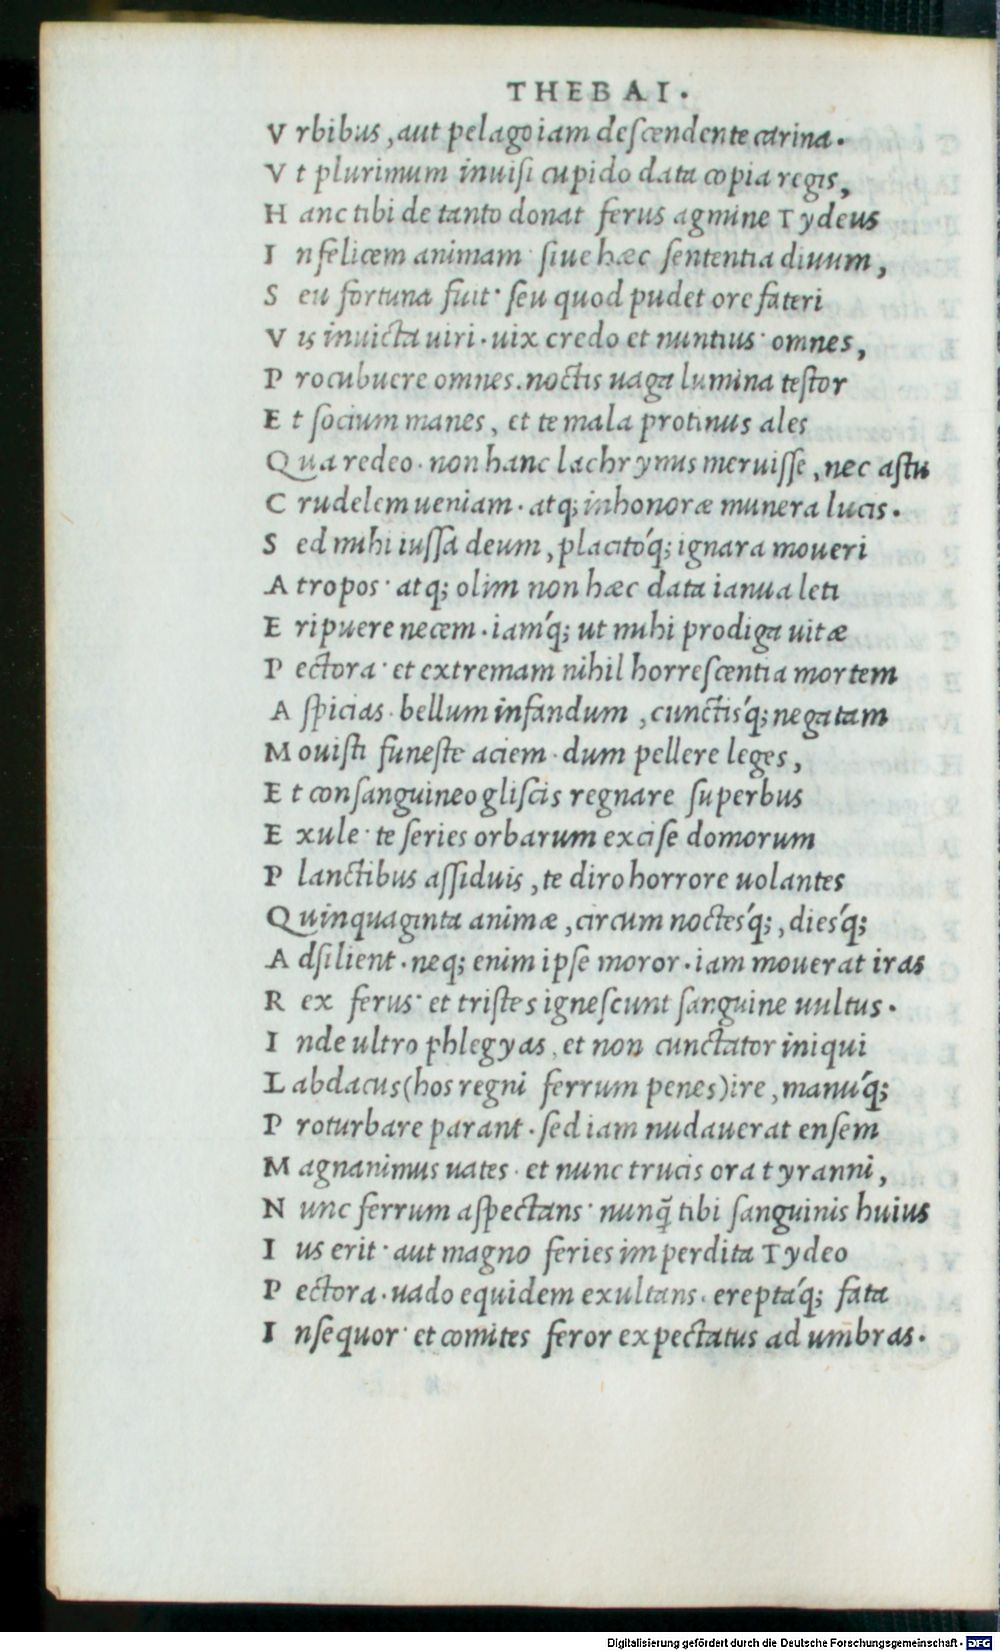 THEBAI.
V rbibus, aut pelago iam descendente carina.
V t plurimum inuisi cupido data copia regis,
H anc tibi de tanto donat ferus agmine Tydeus
I nfelicem animam· siue hæc sententia diuum,
S eu fortuna fuit· seu quod pudet ore fateri
V is inuicta uiri. uix credo et nuntius· omnes,
P rocubuere omnes. noctis uaga lumina testor
E t socium manes, et te mala protinus ales
Q ua redeo· non hanc lachrymis meruisse, nec astu
C rudelem ueniam· atq; inhonoræ munera lucis.
S ed mihi iussa deum, placitóq; ignara moueri
A tropos· atq; olim non hæc data ianua leti
E ripuere necem. iamq́; ut mihi prodiga uitæ
P ectora· et extremam nihil horrescentia mortem
A spicias· bellum infandum, cunctisq́; negatam
M ouisti funeste aciem· dum pellere leges,
E t consanguineo gliscis regnare superbus
E xule· te series orbarum excise domorum
P lanctibus assiduis, te diro horrore uolantes
Q uinquaginta animæ, circum noctesq́;, diesq́;
A dsilient. neq; enim ipse moror. iam mouerat iras
R ex ferus· et tristes ignescunt sanguine uultus.
I nde ultro phlegyas, et non cunctator iniqui
L abdacus (hos regni ferrum penes) ire, manuq́;
P roturbare parant. sed iam nudauerat ensem
M agnanimus uates· et nunc trucis ora tyranni,
N unc ferrum aspectans· nunq̄ tibi sanguinis huius
I us erit· aut magno feries imperdita Tydeo
P ectora. uado equidem exultans. ereptáq; fata
I nsequor· et comites feror expectatus ad umbras.
Digitalisierung gefördert durch die Deutsche Forschungsgemeinschaft · DFG